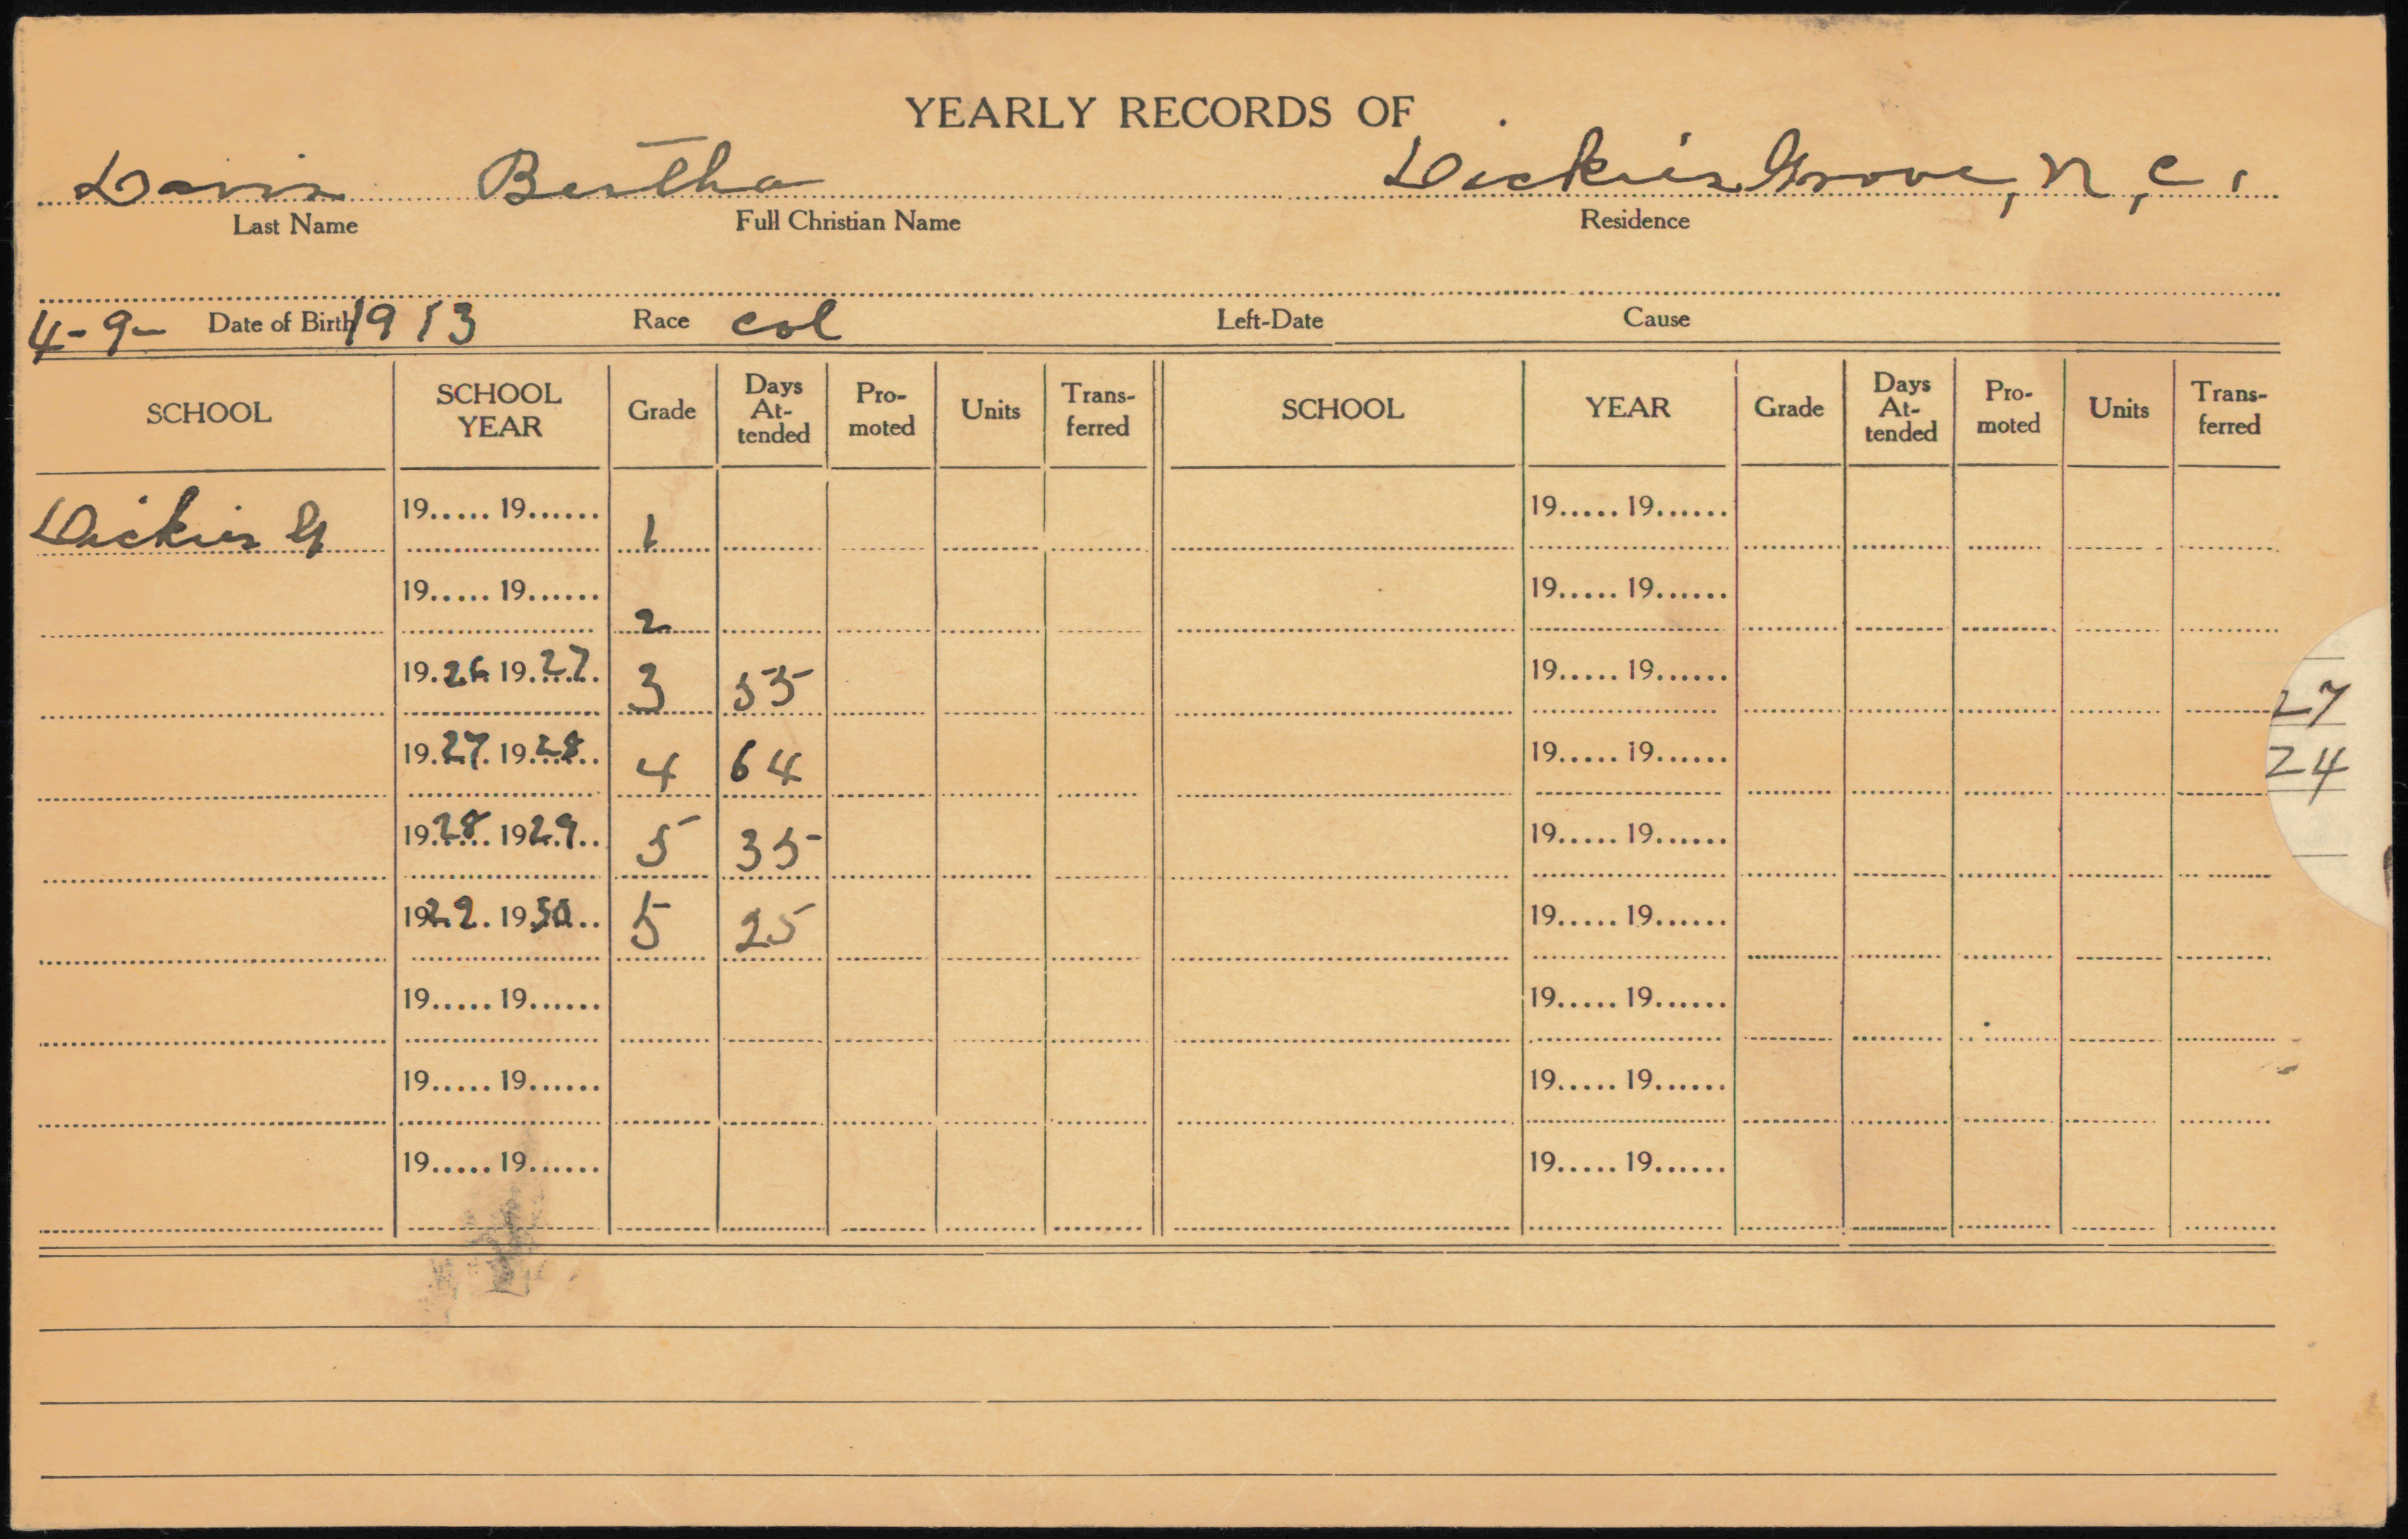 YEARLY RECORDS OF
Davis Bertha Dickies Grove, N, C,
Last Name Full Christian Name Residence
4-9- Date of Birth 1913 Race col Left-Date Cause
SCHOOL SCHOOL YEAR Grade Days At-tended Pro-moted Units Trans-ferred SCHOOL YEAR Grade Days At-tended Pro-moted Units Trans-ferred
Dickies G 19..... 19...... 1 19..... 19......
19..... 19...... 2 19..... 19......
19.26 19.27. 3 55 19..... 19......
27
19.27. 19.28.. 4 64 19..... 19......
24
19.28.. 1929.. 5 35 19..... 19......
1929. 19.30.. 5 25 19..... 19......
19..... 19...... 19..... 19......
19..... 19...... 19..... 19......
19..... 19...... 19..... 19......